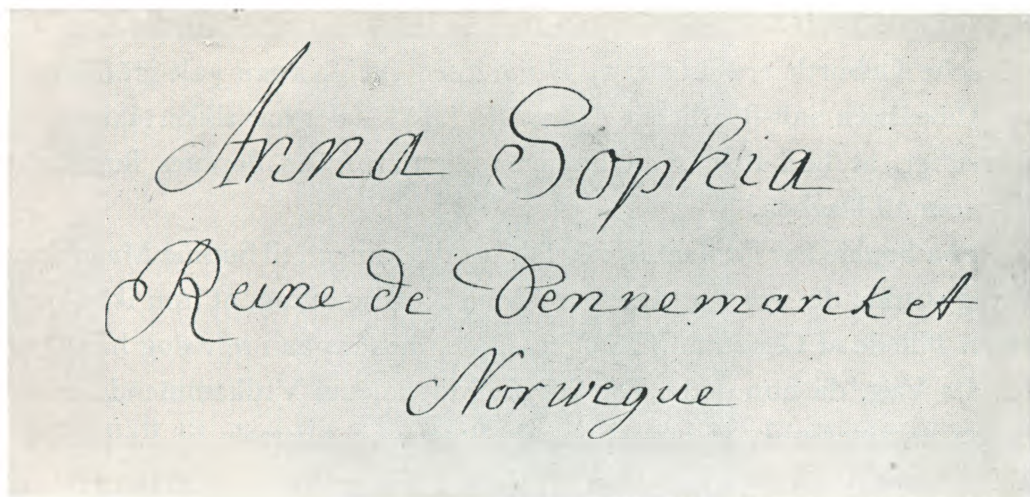 Anna Sophia
Reine de Dennemarck et
Norwegue